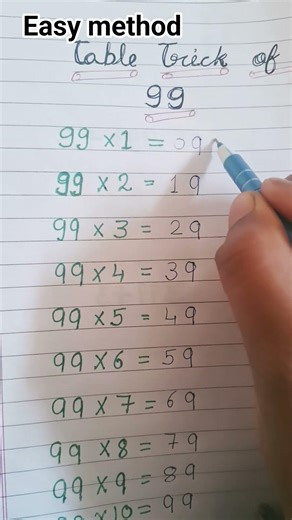 Easy method
Table Trick of
99
99 × 1 = 09
99 × 2 = 19
99 × 3 = 29
99 × 4 = 39
99 × 5 = 49
99 × 6 = 59
99 × 7 = 69
99 × 8 = 79
99 × 9 = 89
99 × 10 = 99